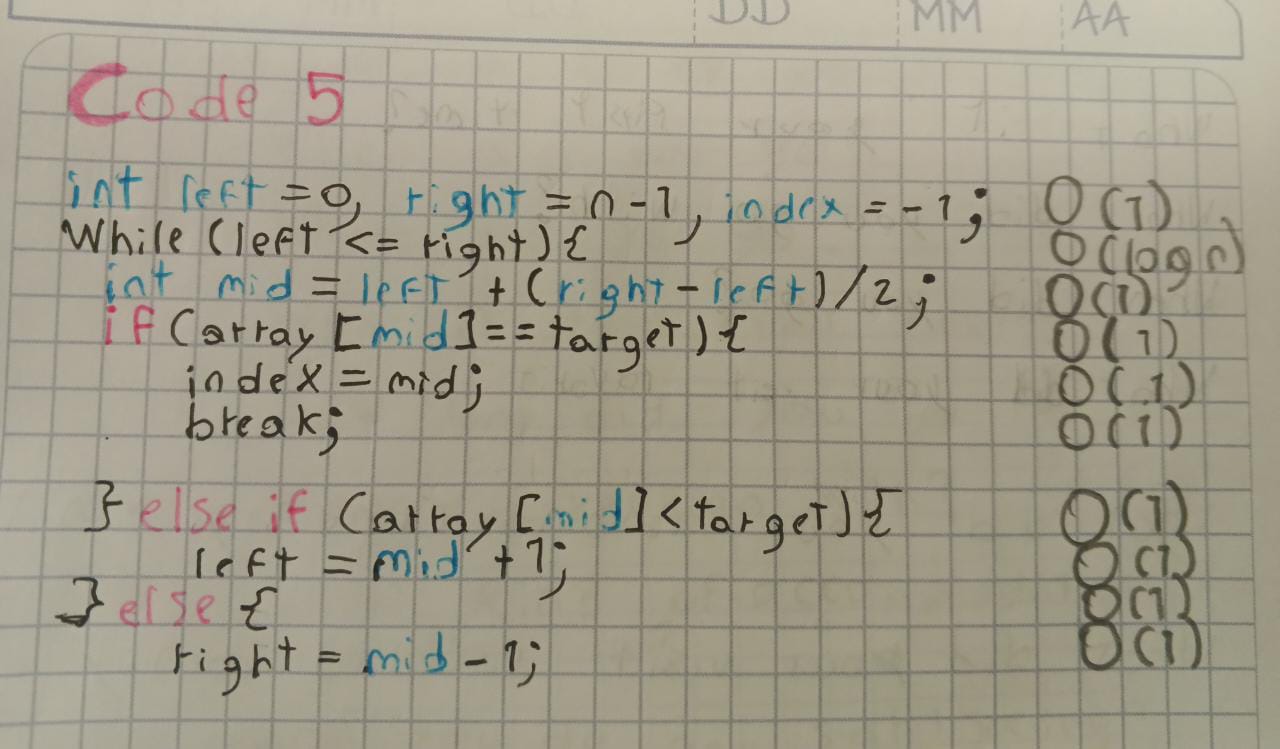 DD MM AA
Code 5
int left = 0, right = n - 1, index = -1; O(1)
While (left <= right) { O(log n)
int mid = left + (right - left) / 2; O(1)
if (array [mid] == target) { O(1)
index = mid; O(1)
break; O(1)
} else if (array [mid] < target) { O(1)
left = mid + 1; O(1)
} else { O(1)
right = mid - 1; O(1)